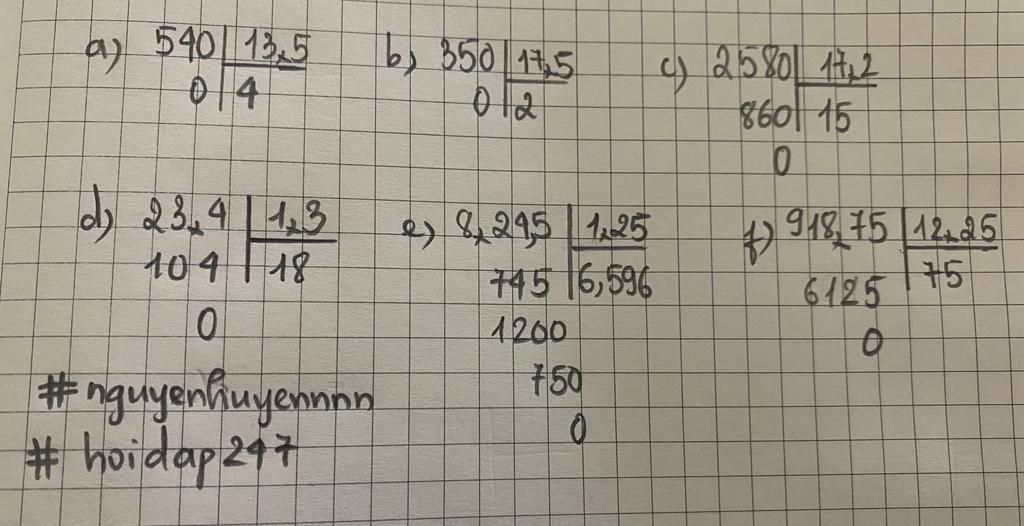 a) 540 13,5 b) 350 17,5 c) 2580 17,2
0 4 0 2 860 15
0
d) 23,4 1,3 e) 8,24,5 1,25 f) 918,75 12,25
104 18 745 6,596 6125 75
0 1200 0
750
0
# nguyenhuyennnn
# hoidap247